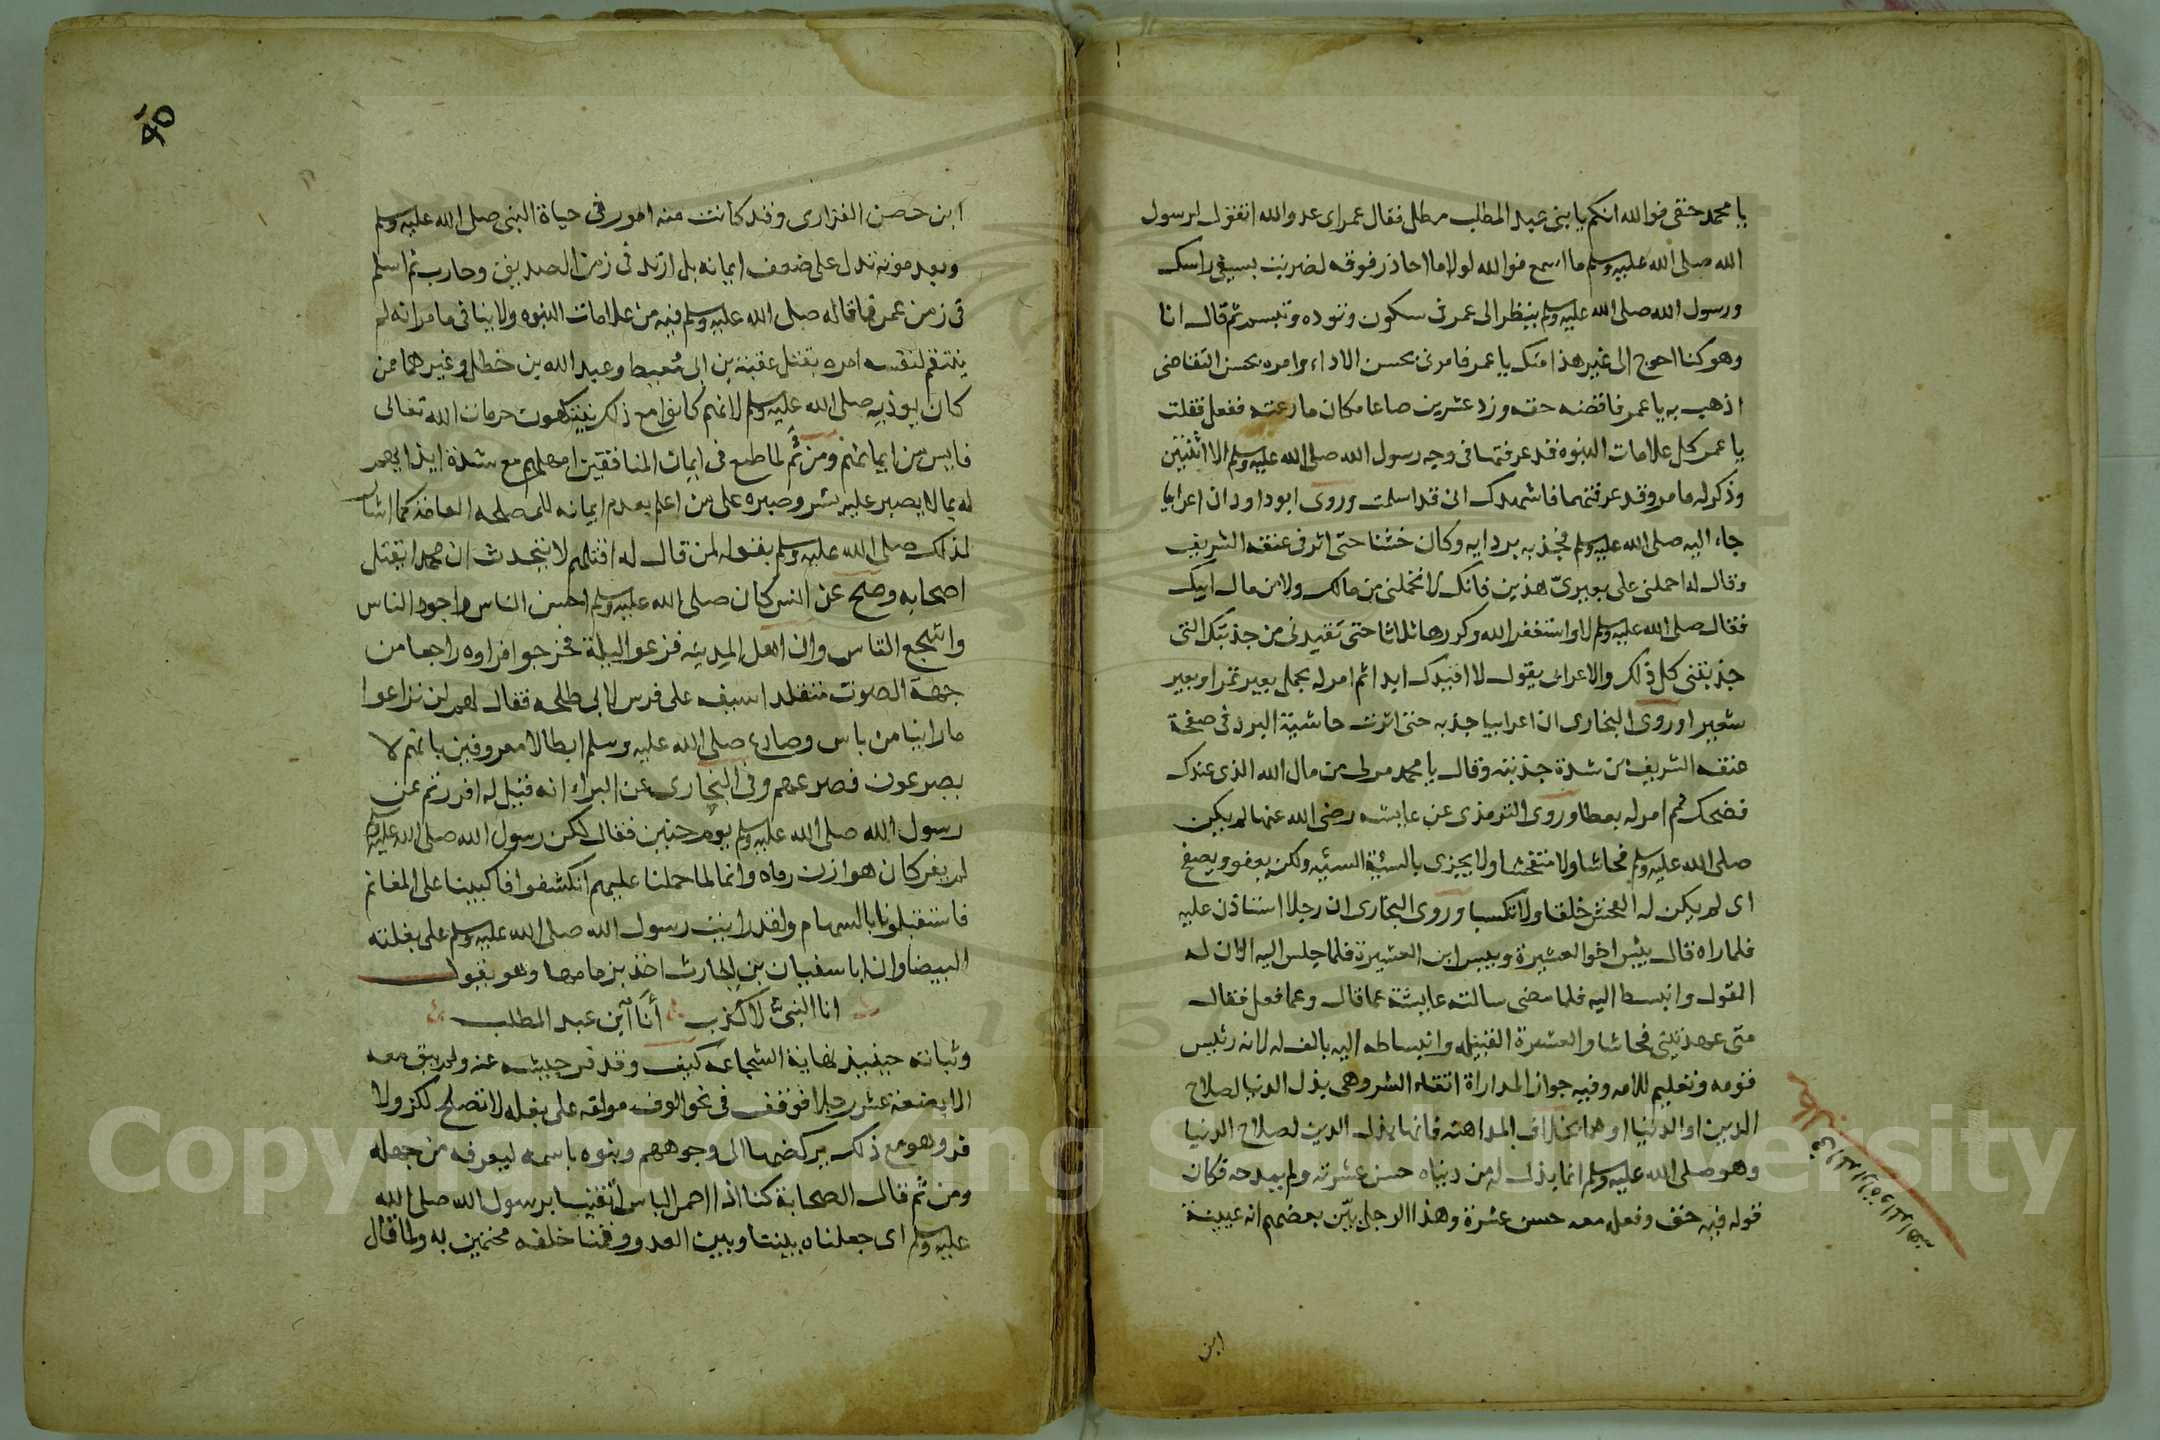 يا محمد حقي فوالله انكم يا بني عبد المطلب مطل فقال عمر اي عدو الله اتقول لرسول
الله صلى الله عليه وسلم ما اسمع فوالله لولا ما احاذر فوقه لضربت بسيفي راسك
ورسول الله صلى الله عليه وسلم ينظر الى عمر في سكون وتوده وتبسم ثم قال انا
وهو كنا احوج الى غير هذا منك يا عمر فامرني بحسن الاداء وامره بحسن التقاضي
اذهب به يا عمر فاقضه حقه وزد عشرين صاعا مكان ما رعته ففعل فقلت
يا عمر كل علامات النبوه قد عرفتها في وجه رسول الله صلى الله عليه وسلم الا اثنتين
وذكر له ما مر وقد عرفتهما فاشهدك اني قد اسلمت وروى ابو داود ان اعرابيا
جاء اليه صلى الله عليه وسلم فجذبه بردايه وكان خشنا حتى اثر في عنقه الشريف
وقال له احملني على بعيريّ هذين فانك لا تحملني من مالك ولا من مال ابيك
فقال صلى الله عليه وسلم لا واستغفر الله وكررها ثلاثا حتى تقيدني من جذبتك التي
جذبتني كل ذلك والاعرابي يقول لا اقيدك ابدا ثم امر له بحمل بعير تمرا وبعير
شعيرا وروى البخارى ان اعرابيا جذبه حتى اثرت حاشية البرد في صفحة
عنقه الشريف من شدة جذبته وقال يا محمد مر لي من مال الله الذى عندك
فضحك ثم امر له بعطا وروى الترمذى عن عايشه رضي الله عنها لم يكن
صلى الله عليه وسلم فحاشا ولا متفحشا ولا يجزى بالسيئة السيئه ولكن يعفو ويصفح
اى لم يكن له الفحش خلقا ولا تكسبا وروى البخارى ان رجلا استاذن عليه
فلما راه قال بئس اخو العشيرة وبيس ابن العشيرة فلما جلس اليه الان له
القول وانبسط اليه فلما مضى سالته عايشة عما قال وعما فعل فقال
متى عهدتيني فحاشا والعشيرة القبيله وانبساطه اليه تالف له لانه رئيس
قومه وتعليم للامه وفيه جواز المداراة اتقاء الشر وهى بذل الدنيا لصلاح
الدين او الدنيا او هما بخلاف المداهنه فانها بذل الدين لصلاح الدنيا
وهو صلى الله عليه وسلم انما بذل له من دنياه حسن عشرته ولم يمدحه فكان
قوله فيه حق وفعله معه حسن عشرة وهذا الرجل بيّن بعضهم انه عيينة
ابن
٩٥
ابن حصن الفزارى وقد كانت منه امور في حياة النبي صلى الله عليه وسلم
وبعد موته تدل على ضعف ايمانه بل ارتد في زمن الصديق وحارب ثم اسلم
في زمن عمر فما قاله صلى الله عليه وسلم فيه من علامات النبوه ولا ينافي ما مر انه لم
ينتقم لنفسه امره بقتل عقبة بن ابي مُعيط وعبد الله بن خطل وغيرهما من
كان يوذيه صلى الله عليه وسلم لانهم كانوا مع ذلك ينتهكون حرمات الله تعالى
فايس من ايمانهم ومن ثُم لما طمع في ايمان المنافقين امهلهم مع شدة ايذايهم
له بما لا يصبر عليه بشر وصبره على من اعلم بعدم ايمانه للمصلحه العامة كما اشار
لذلك صلى الله عليه وسلم بقوله لمن قال له اقتلهم لا يتحدث ان محمدا يقتل
اصحابه وصح عن انس كان صلى الله عليه وسلم احسن الناس واجود الناس
واشجع الناس وان اهل المدينه فزعوا ليلة فخرجوا فراوه راجعا من
جهة الصوت متقلدا سيف على فرس لابي طلحه فقال لهم لن تراعوا
ما راينا من باس وصارع صلى الله عليه وسلم ابطالا معروفين بانهم لا
يصرعون فصرعهم وفي البخارى عن البراء انه قيل له افررتم عن
رسول الله صلى الله عليه وسلم يوم حنين فقال لكن رسول الله صلى الله عليه وسلم
لم يفر كان هوازن رماه وانما لما حملنا عليهم انكشفوا فاكببنا على المغانم
فاستقبلونا بالسهام ولقد رايت رسول الله صلى الله عليه وسلم على بغلته
البيضا وان ابا سفيان بن الحارث اخذ بزمامها وهو يقول
انا النبيّ لا كذب أنا ابن عبد المطلب
وثباته حينيذ نهاية الشجاعه كيف وقد فر جيشه عنه ولم يبق معه
الا بضعة عشر رجلا فوقف في نحو الوف مولفه على بغله لا تصلح لكر ولا
فر وهو مع ذلك يركضها الى وجوههم وينوه باسمه ليعرفه من جهله
ومن ثُم قال الصحابة كنا اذا احمر الباس اتقينا برسول الله صلى الله
عليه وسلم اى جعلناه بيننا وبين العدو وقمنا خلفه محتمين به ولما قال
Copyright © King Saud University